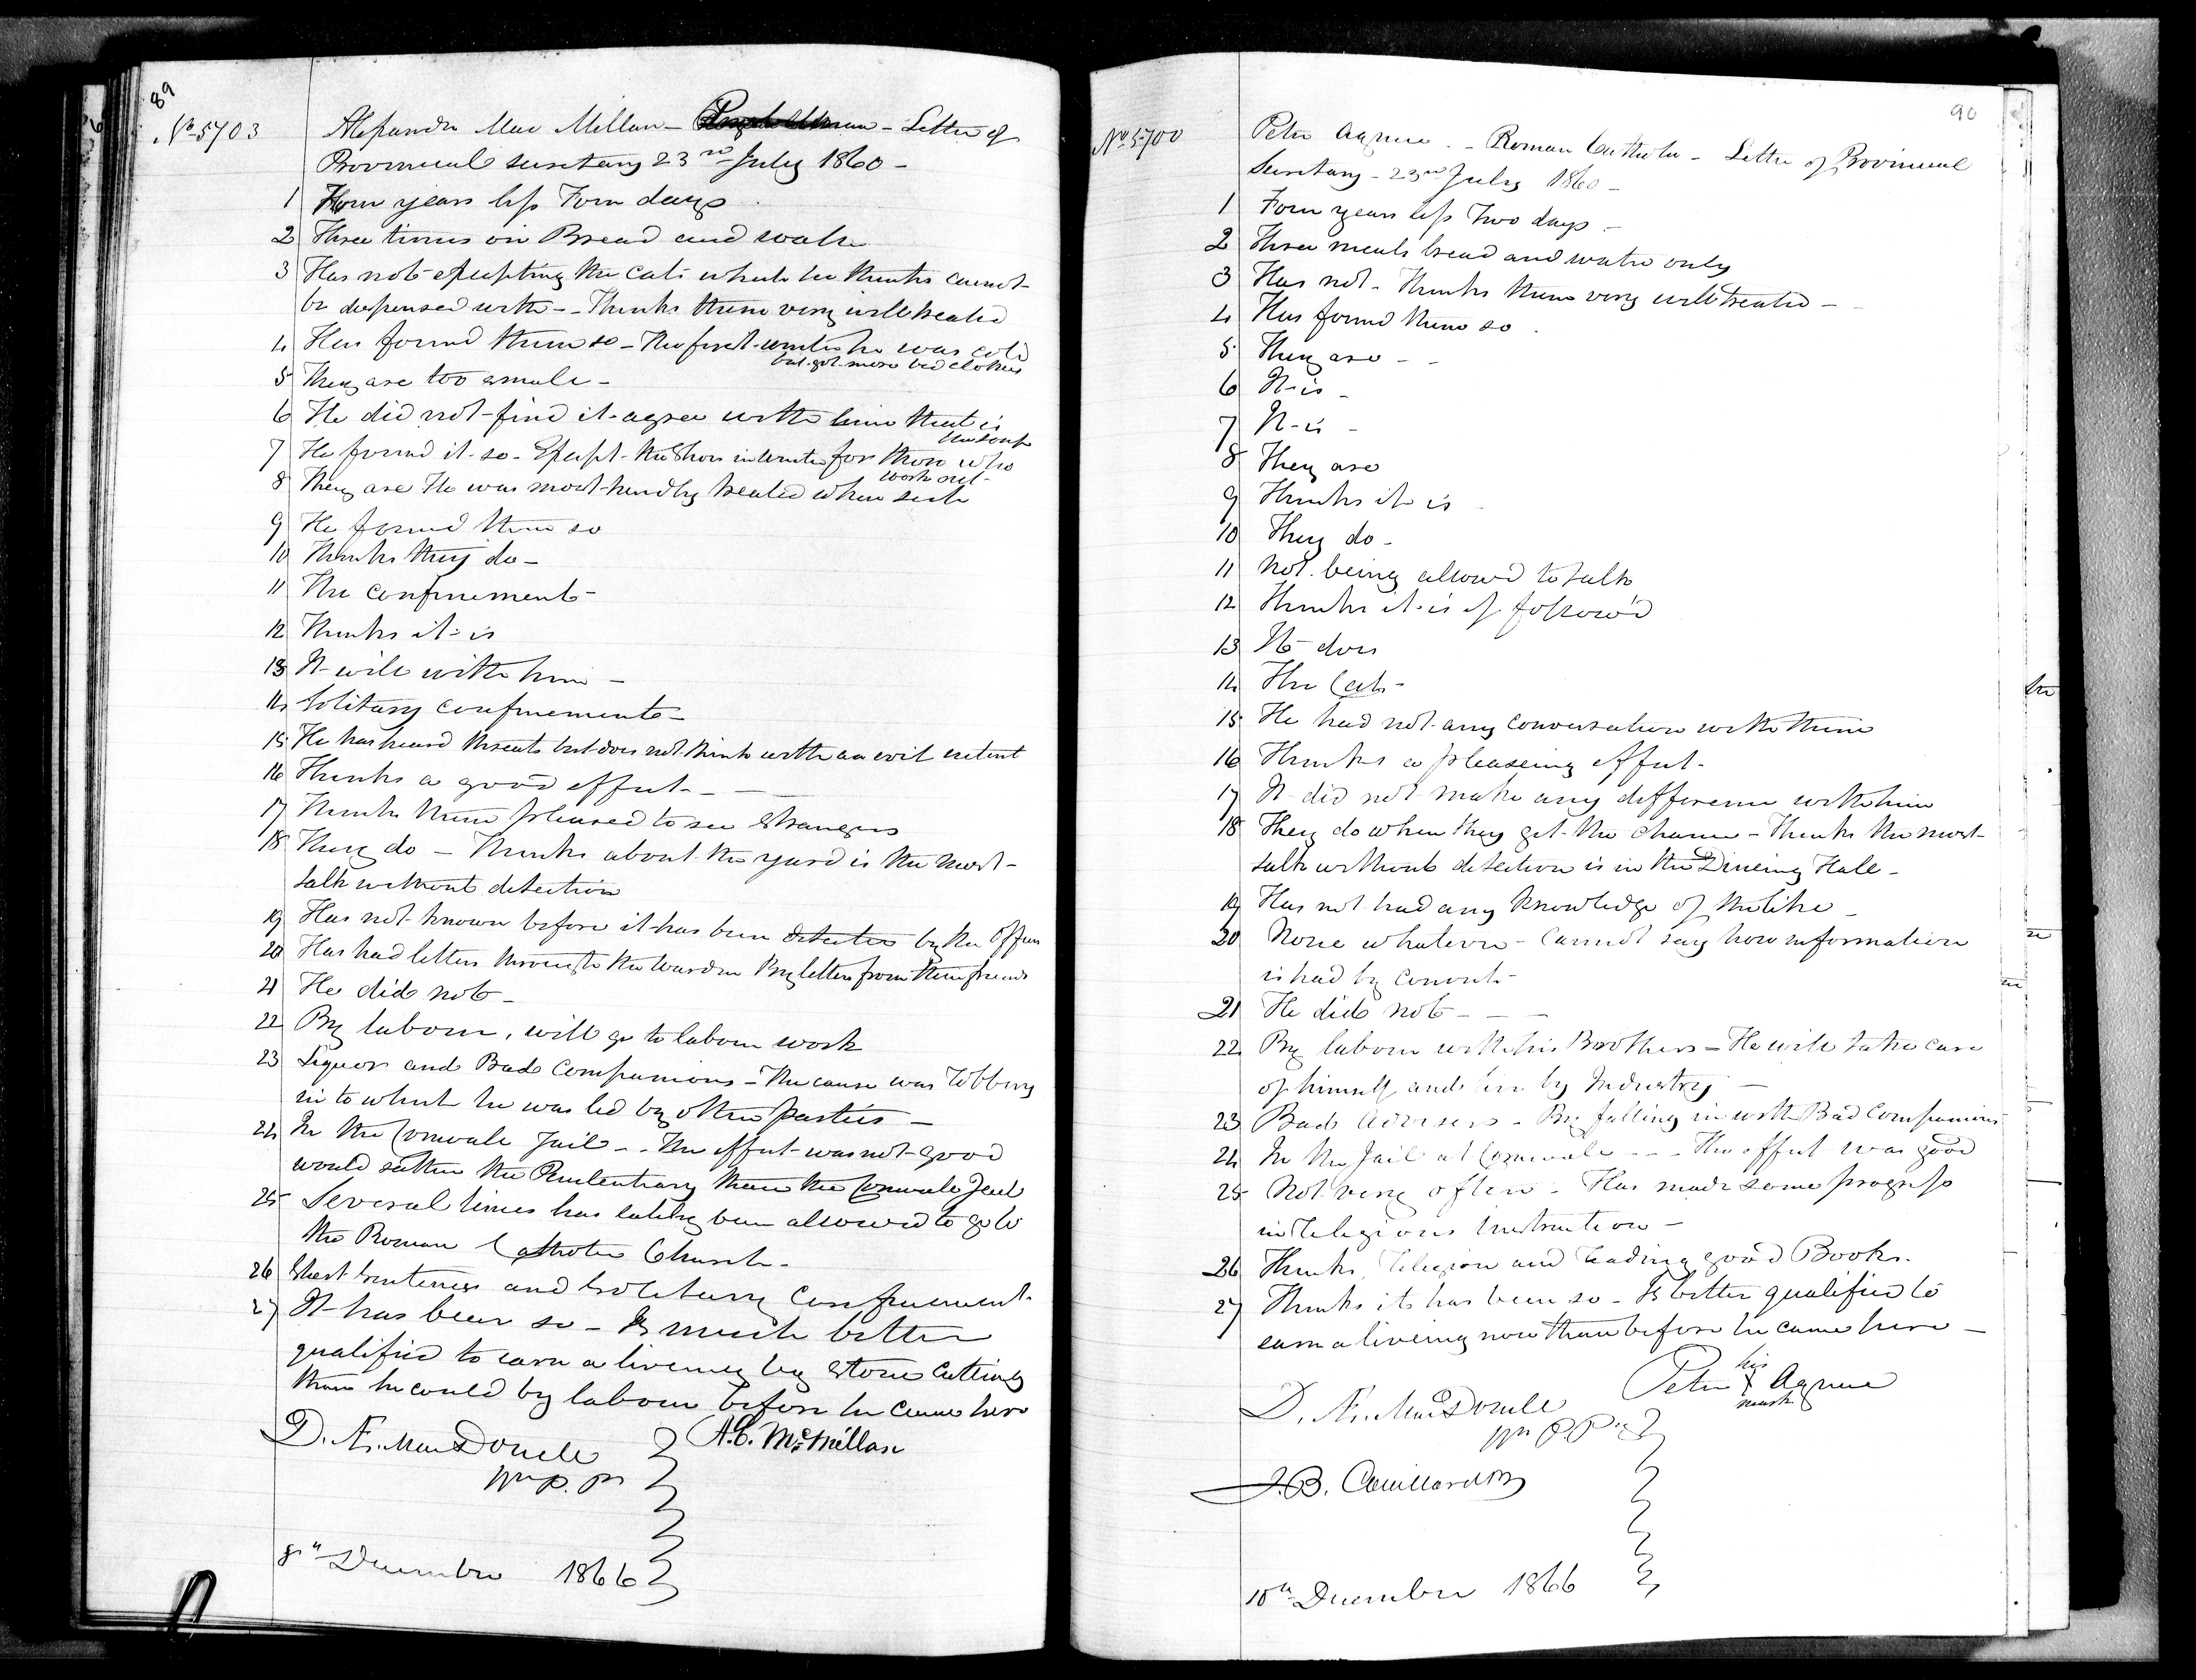 89
No 5703
Alexander Mac Millan - - Letter of
Provincial Secretary 23rd July 1860 -
1 Four years less Four days
2 Three times on Bread and water
3 Has not excepting the Cats which he thinks cannot
be dispensed with - - Thinks them very well treated
4 Has found them so - The first winter he was cold
but got more bed clothes
5 They are too small -
6 He did not find it agree with him that is
the soup
7 He found it so - Except the Shoes in winter for those who
work out -
8 They are He was most kindly treated when sick
9 He found them so
10 Thinks they do -
11 The confinement -
12 Thinks it is
13 It will with him -
14 Solitary confinement -
15 He has heard threats but does not think with an evil intent
16 Thinks a good effect - -
17 Thinks them pleased to see Strangers
18 They do - Thinks about the yard is the most
talk without detection
19 Has not known before it has been detected by the Officers
20 Has had letters through the Warden By letters from their friends
21 He did not -
22 By labour, will go to labour work
23 Liquor and Bad Companions - The cause was Robbery
in to which he was led by other parties -
24 In the Cornwall Jail - - The effect was not good
would rather the Penitentiary than the Cornwall Jail
25 Several times has lately been allowed to go to
the Roman Catholic Church -
26 Short Sentences and Solitary Confinement -
27 It has been so - Is much better
qualified to earn a liveing by Stone Cutting
than he could by labour before he came here
D. Æ. MacDonell
Wn P. Py
A. C. McMillan
8th December 1866
90
No 5700
Peter Agnew - Roman Catholic - Letter of Provincial
Secretary - 23rd July 1860 -
1 Four years less Two days -
2 Three meals bread and water only
3 Has not - Thinks them very well treated -
4 Has found them so
5 They are - -
6 It is -
7 It is -
8 They are
9 Thinks it is
10 They do -
11 Not being allowed to talk
12 Thinks it is if followd
13 It does
14 The Cats -
15 He had not any conversation with them
16 Thinks a pleaseing effect -
17 It did not make any difference with him
18 They do when they get the chance - Thinks the most
talk without detection is in the Dineing Hall -
19 Has not had any knowledge of the like -
20 None whatever - Cannot say how information
is had by convicts -
21 He did not - - -
22 By labour with his Brothers - He will take care
of himself and live by Industry -
23 Bad Advisers - By falling in with Bad Companions
24 In the Jail at Cornwall - - - The effect was good
25 Not very often - Has made some progress
in Religious Instruction -
26 Thinks Religion and Reading good Books.
27 Thinks it has been so - Is better qualified to
earn a liveing now than before he came here -
Peter his X mark Agnew
D. Æ. MacDonell
Wn P. Py
J. B. Couillard
10th December 1866